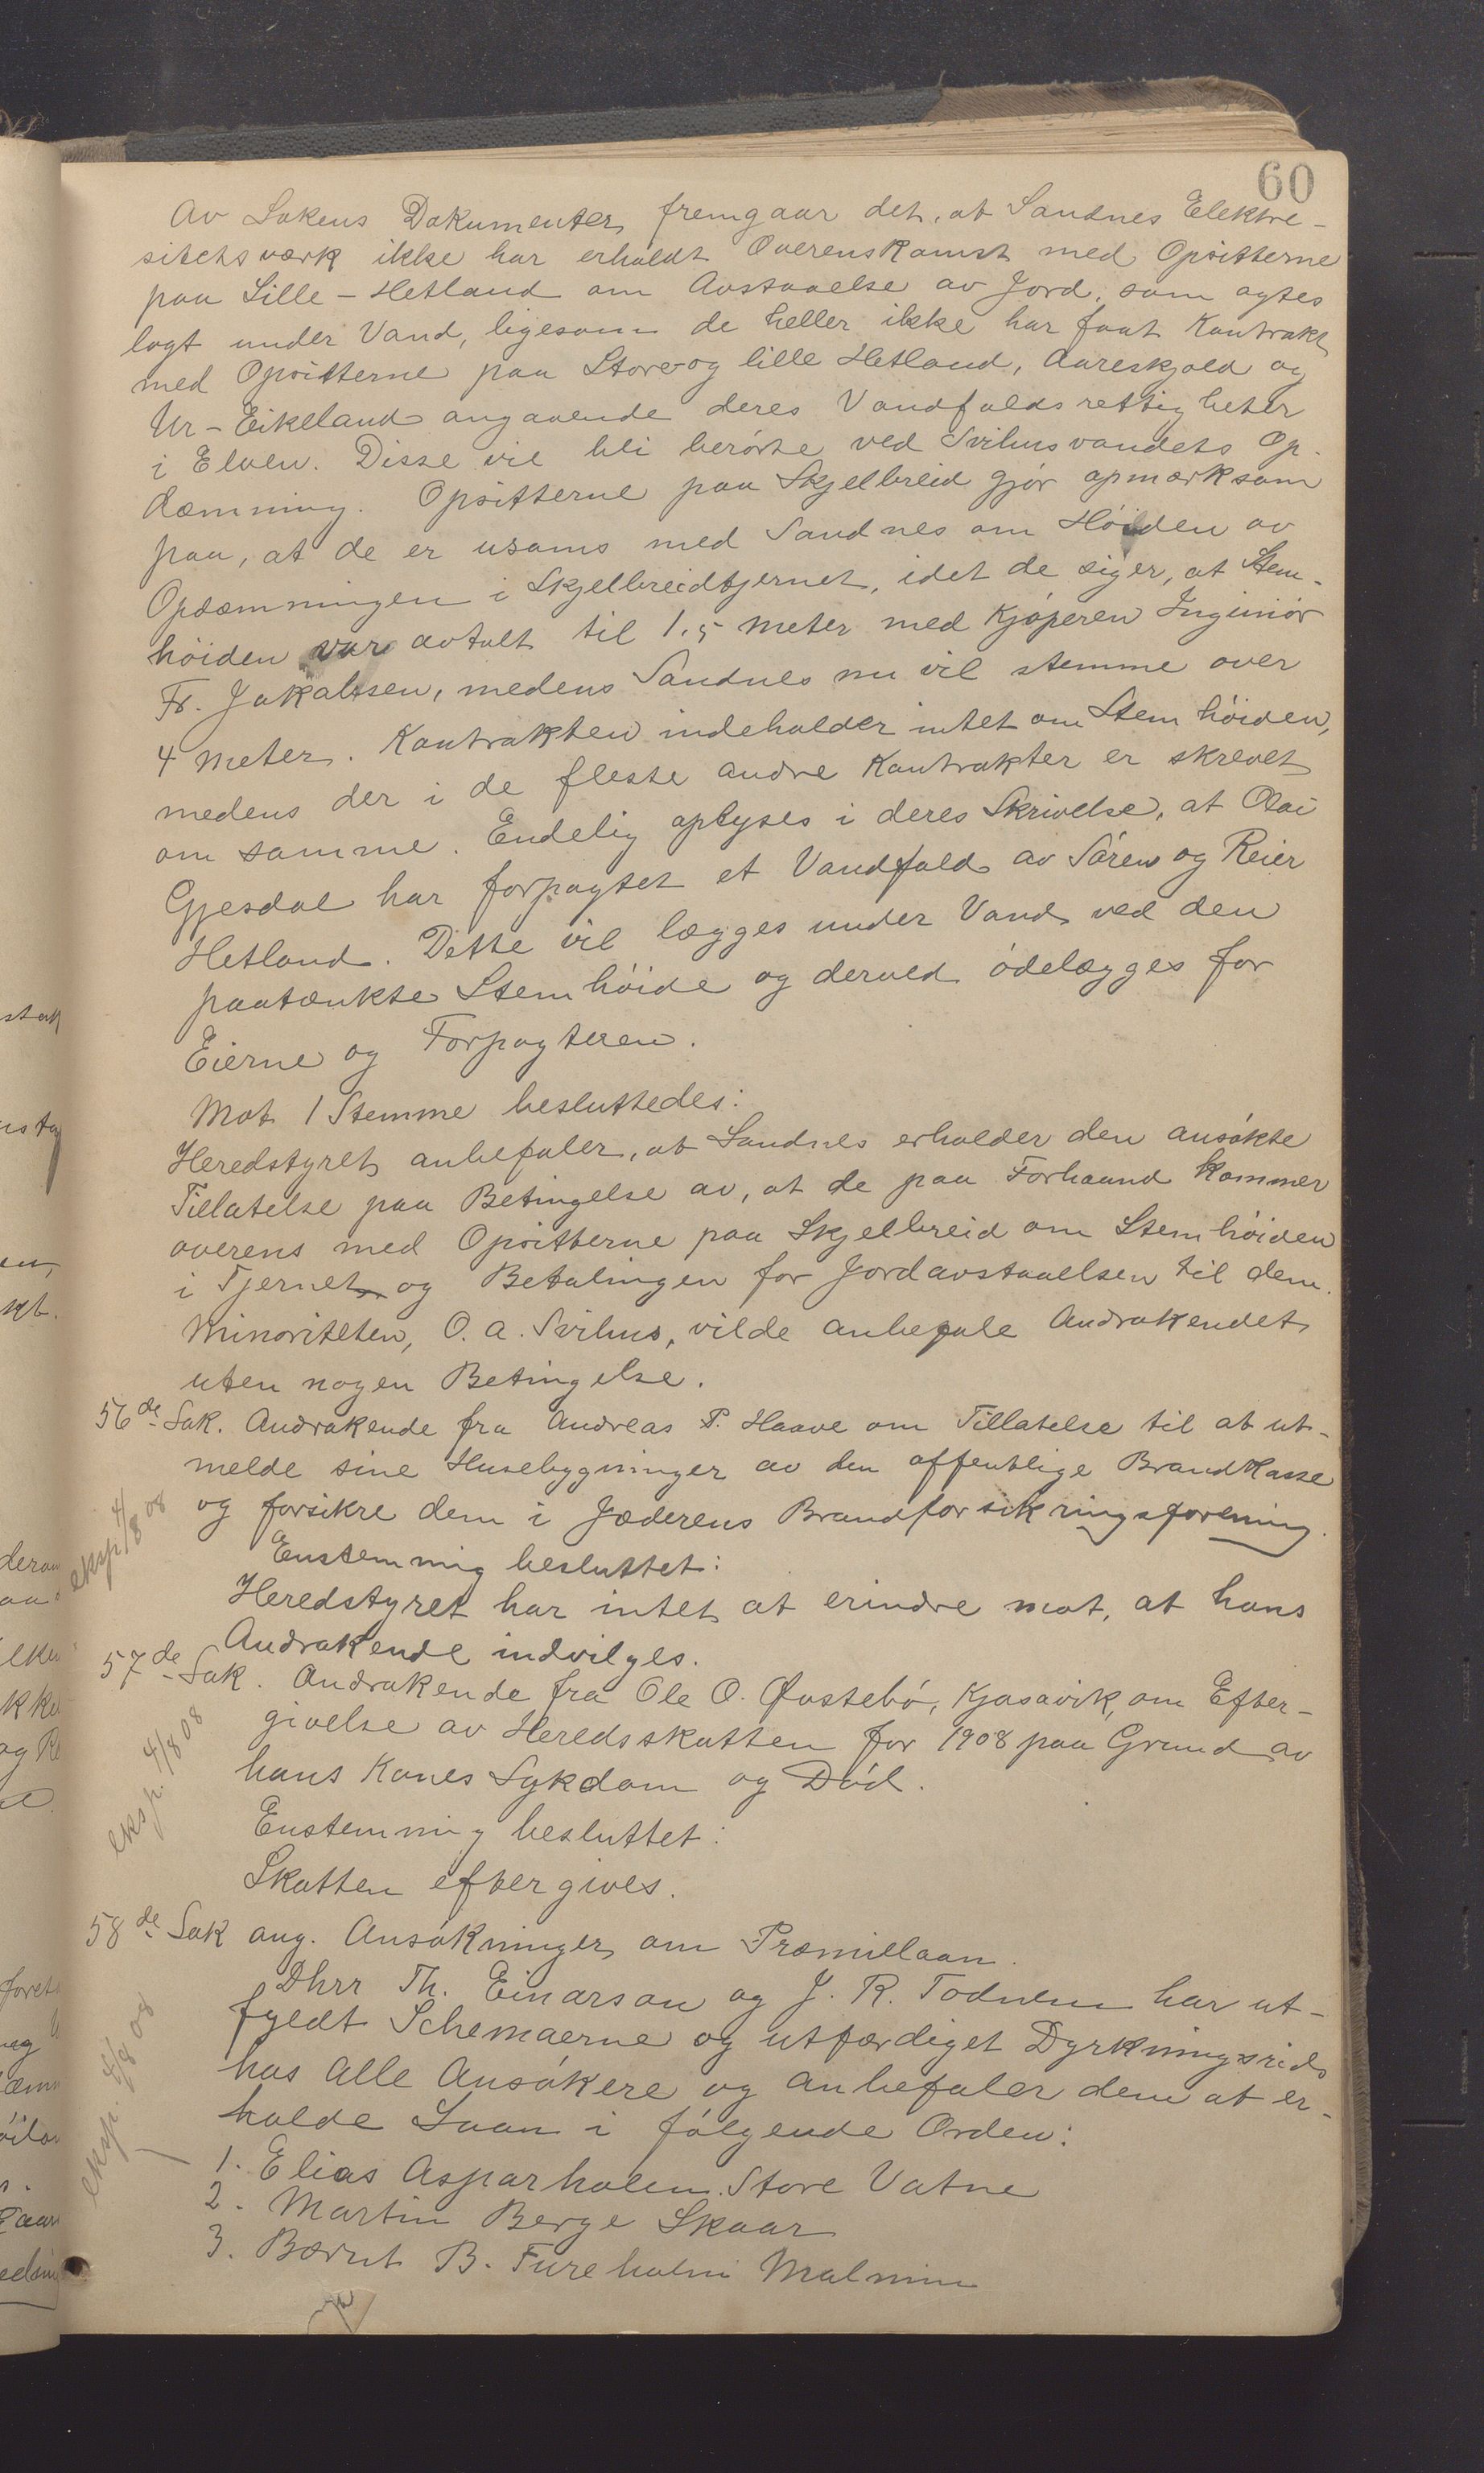 60
Av Sakens Dokumenter fremgaar det, at Sandnes Elektre-
sitetsværk ikke har erholdt Overenskomst med Opsitterne
paa Lille-Hetland om Avstaaelse av Jord, som agtes
lagt under Vand, ligesom de heller ikke har faat Kontrakt
med Opsitterne paa Store og lille Hetland, Aareskjold og
Ur-Eikeland angaaende deres Vandfaldsrettigheter
i Elven. Disse vil bli berørte ved Svihusvandets Op-
dæmning. Opsitterne paa Skjelbreid gjør opmærksom
paa, at de er usams med Sandnes om Høiden av
Opdæmningen i Skjelbreidtjernet, idet de siger, at Stem-
høiden var avtalt til 1,5 Meter med Kjøperen Ingeniør
Fr. Jakobsen, medens Sandnes nu vil stemme over
4 Meter. Kontrakten indeholder intet om Stemhøiden,
medens der i de fleste andre Kontrakter er skrevet
om samme. Endelig oplyses i deres Skrivelse, at Olai
Gjesdal har forpagtet et Vandfald av Søren og Reier
Hetland. Dette vil lægges under Vand ved den
paatænkte Stemhøide og derved ødelægges for
Eierne og Forpagteren.
Mot 1 Stemme besluttedes:
Heredstyret anbefaler, at Sandnes erholder den ansøkte
Tillatelse paa Betingelse av, at de paa Forhaand kommer
overens med Opsitterne paa Skjelbreid om Stemhøiden
i Tjernet og Betalingen for Jordavstaaelsen til dem.
Minoriteten, O. A. Svihus, vilde anbefale Andrakendet
uten nogen Betingelse.
56de Sak. Andrakende fra Andreas P. Haave om Tillatelse til at ut-
melde sine Husebygninger av den offentlige Brandkasse
og forsikre dem i Jæderens Brandforsikringsforening.
eksp. 4/8 08
Enstemmig besluttet:
Heredstyret har intet at erindre mot, at hans
Andrakende indvilges.
57de Sak. Andrakende fra Ole O. Østebø, Kjosavik, om Efter-
givelse av Heredsskatten for 1908 paa Grund av
hans Kones Sykdom og Død.
eksp. 4/8 08
Enstemmig besluttet:
Skatten eftergives.
58de Sak ang. Ansøkninger om Præmielaan.
Dhrr Th. Einarson og J. R. Todnem har ut-
fyldt Schemaerne og utfærdiget Dyrkningsrids
hos alle Ansøkere og anbefaler dem at er-
holde Laan i følgende Orden:
eksp. 4/8 08
1. Elias Asparholen Store Vatne
2. Martin Berge Skaar
3. Bærnt B. Fureholm Malmin